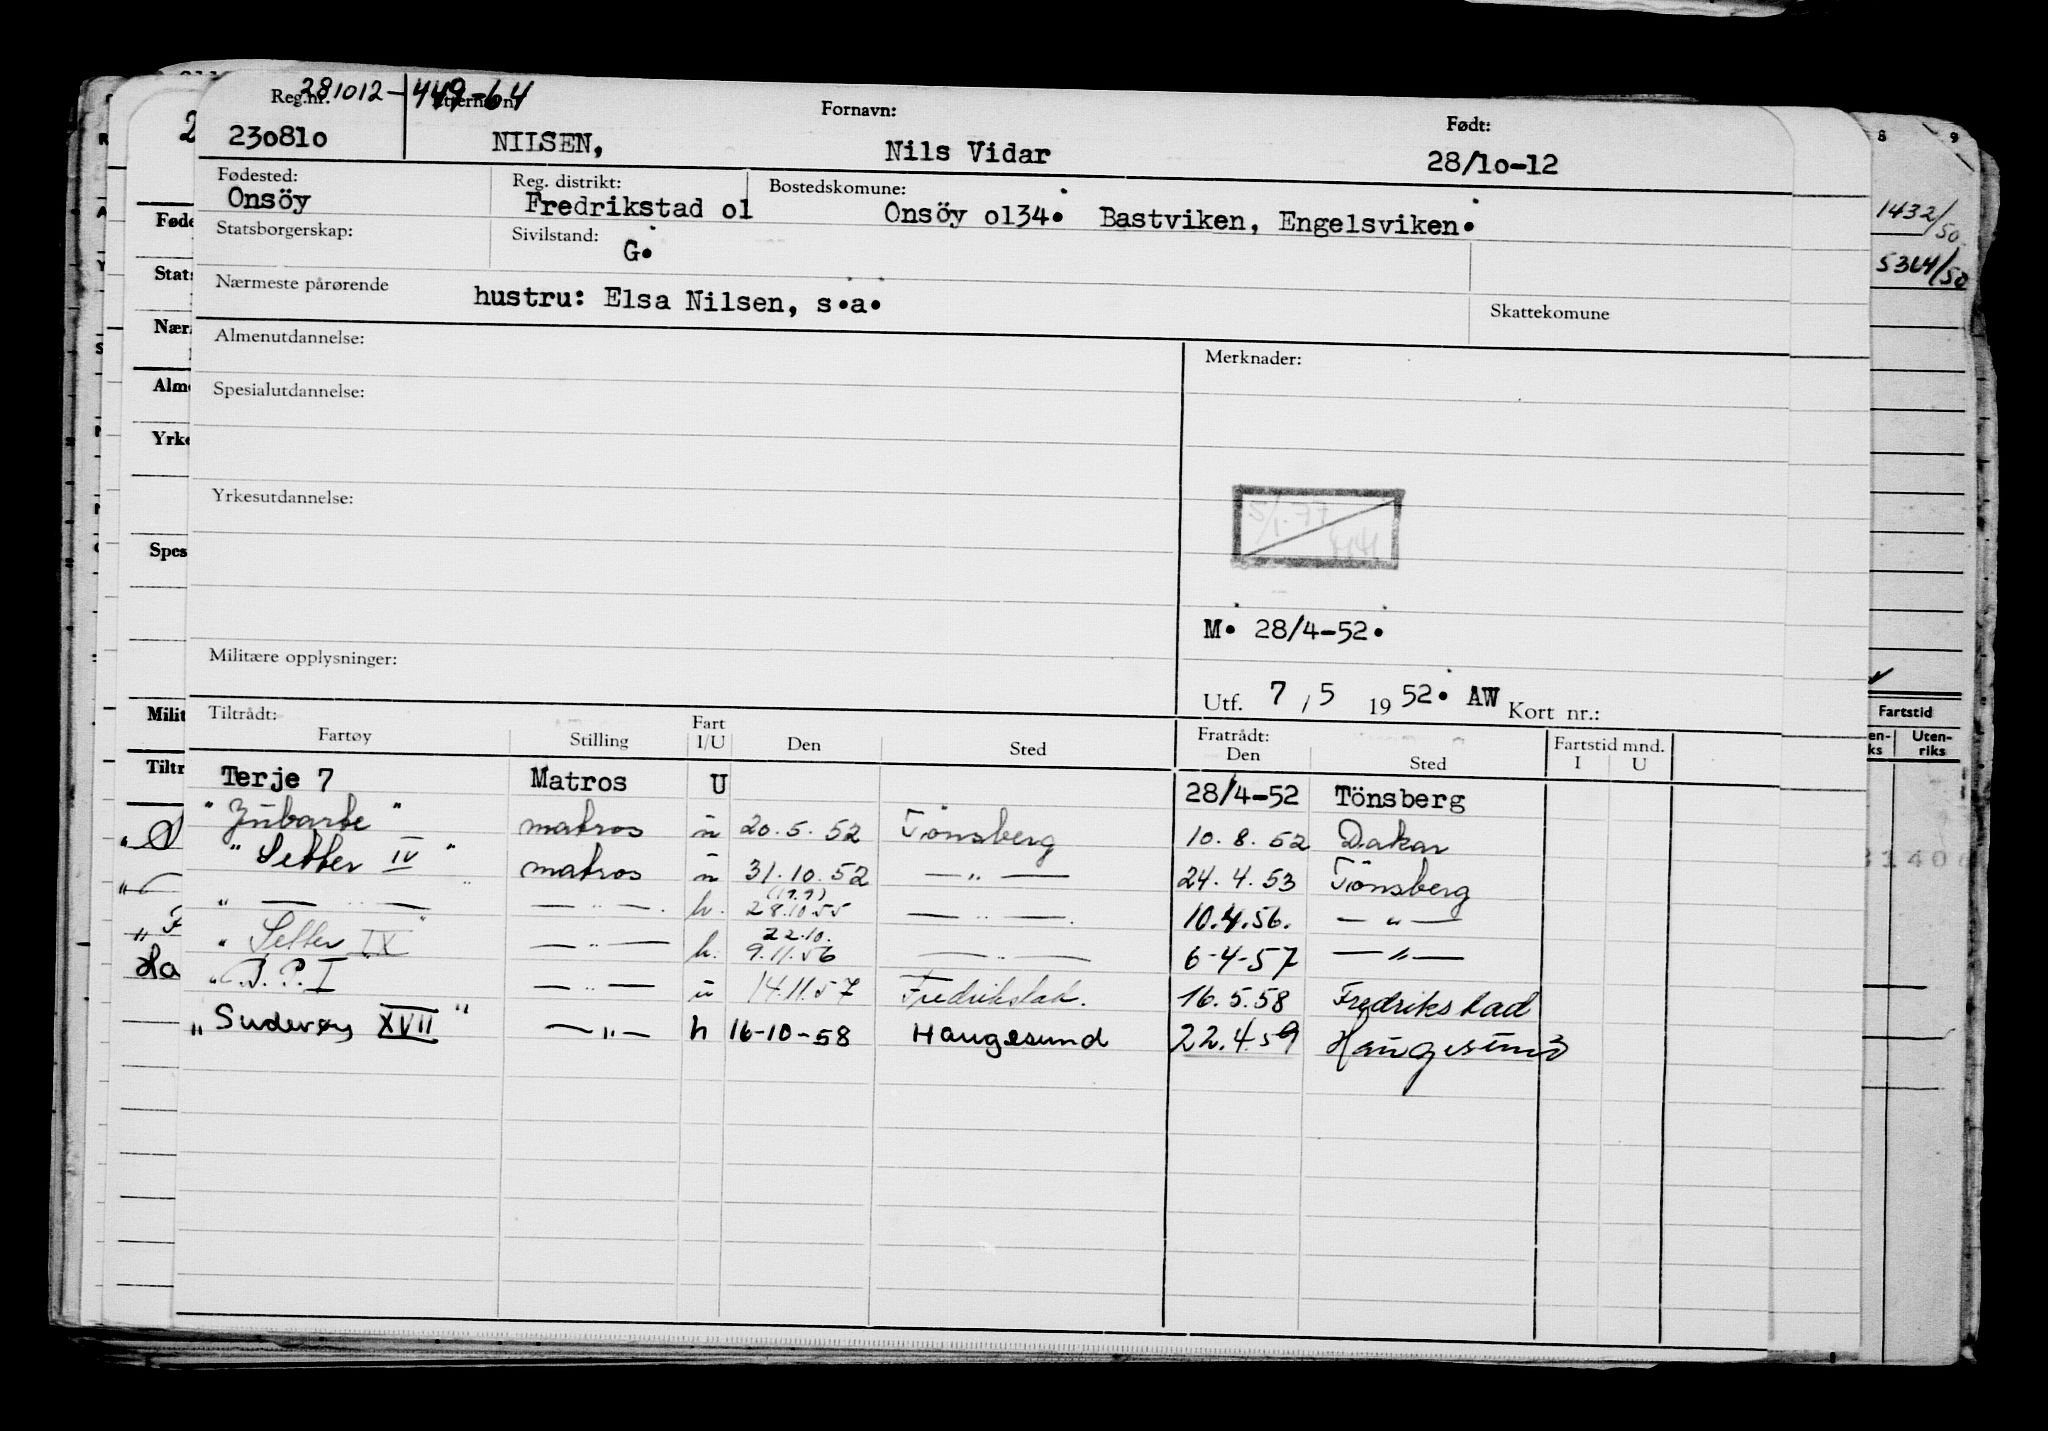 281012-449-64
Reg.nr. Etternavn: Fornavn: Født:
230810 NILSEN, Nils Vidar 28/10-12
Fødested: Reg. distrikt: Bostedskomune:
Onsöy Fredrikstad o1 Onsöy o134. Bastviken, Engelsviken.
Statsborgerskap: Sivilstand: G.
Nærmeste pårørende hustru: Elsa Nilsen, s.a. Skattekomune
Almenutdannelse: Merknader:
Spesialutdannelse:
Yrkesutdannelse:
M. 28/4-52.
Militære opplysninger:
Utf. 7 / 5 19 52. AW Kort nr.:
Tiltrådt: Fratrådt:
Fartøy Stilling Fart I/U Den Sted Den Sted Fartstid mnd. I U
Terje 7 Matros U 28/4-52 Tönsberg
"Jubarte" matros u 20.5.52 Tönsberg 10.8.52 Dakar
"Setter IV" matros u 31.10.52 — " — 24.4.53 Tönsberg
" — " — — " — h. (19.9) 28.10 55 — " — 10.4.56. — " —
"Setter IX" — " — h. 22.10. 9.11.56 — " — 6-4-57 — " —
— " — u 14.11.57 Fredrikstad. 16.5.58 Fredrikstad
"Suderøy XVII" — " — h 16-10-58 Haugesund 22.4.59 Haugesund
1432/50
5364/50
Fartstid
Uten-
riks